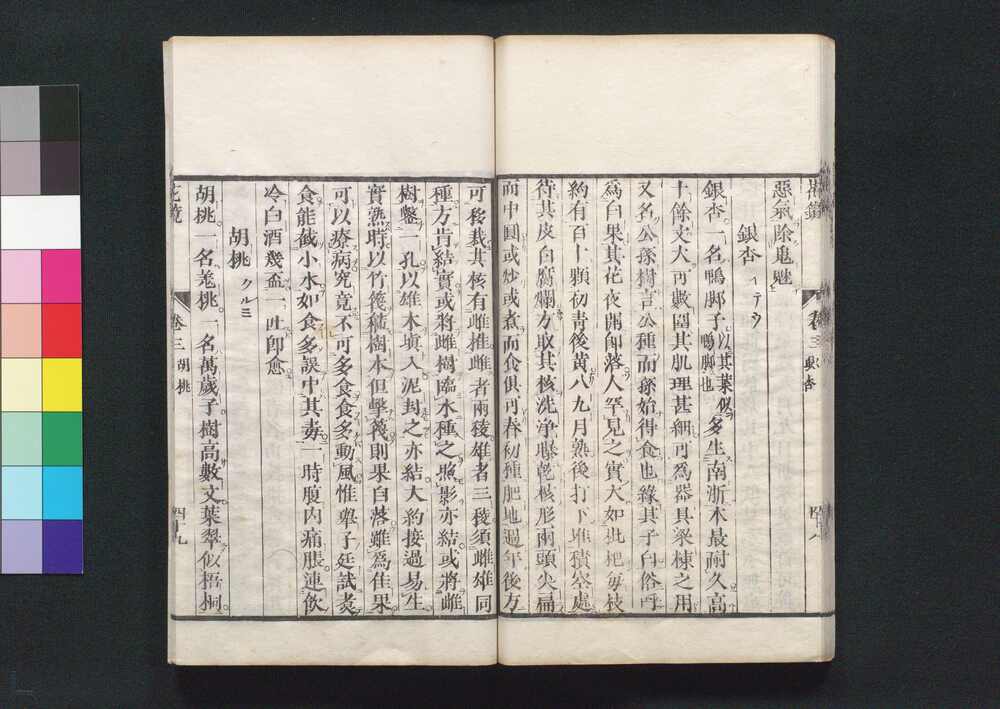 惡氣除鬼魅
銀杏 イテウ
銀杏。一名鴨脚子以其葉似鴨脚也多生南浙木最耐久高
十餘丈大可數圍其肌理甚細可為器具梁棟之用
又名公孫樹言公種而孫始得食也緣其子白俗呼
為白果其花夜開卽落人罕見之實大如枇杷每枝
約有百十顆初青後黃八九月熟後打下堆積空處
待其皮白腐爛方取其核洗淨曝乾核形兩頭尖扁
而中圓或炒或煮而食俱可春初種肥地過年後方
卷三
四十八
可移栽其核有雌雄雌者兩稜雄者三稜須雌雄同
種方肯結實或將雌樹臨水種之照影亦結或將雌
樹鑿一孔以雄木填入泥封之亦結。大約接過易生
實熟時以竹篾箍樹本但擊篾則果自落雖為佳果
可以療病究竟不可多食食多動風惟舉子廷試煮
食能截小水如食多誤中其毒一時腹內痛脹連飲
冷白酒幾盃一吐卽愈
胡桃 クルミ
胡桃。一名羌桃。一名萬歲子樹高數丈葉翠似梧桐
花鏡
卷三 胡桃
四十九